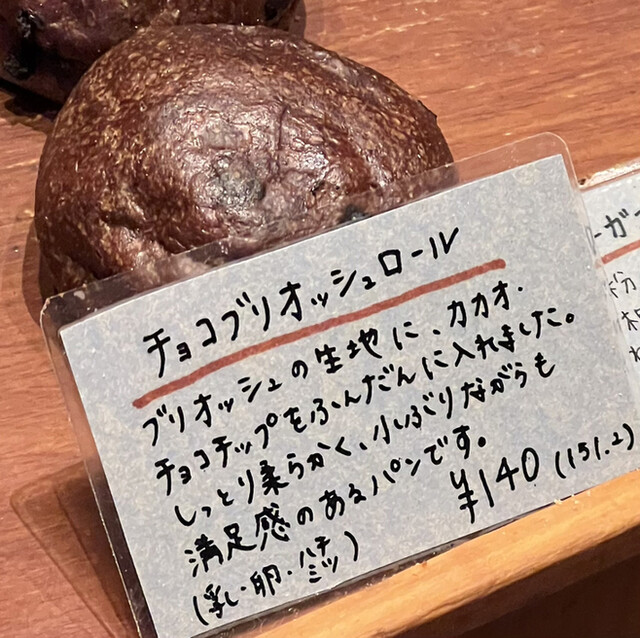 チョコブリオッシュロール
ブリオッシュの生地に、カカオ・
チョコチップをふんだんに入れました。
しっとり柔らかく、小ぶりながらも
満足感のあるパンです。
¥140(151.2)
(乳・卵・ハチミツ)
ーガー